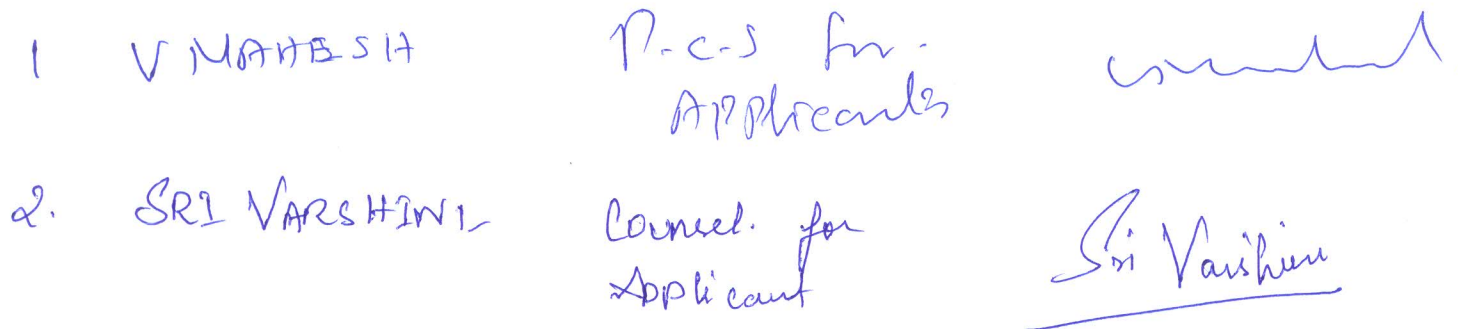 1 V MAHESH P.C.S for.
Applicants
2. SRI VARSHINI Counsel. for
Applicant Sri Varshini